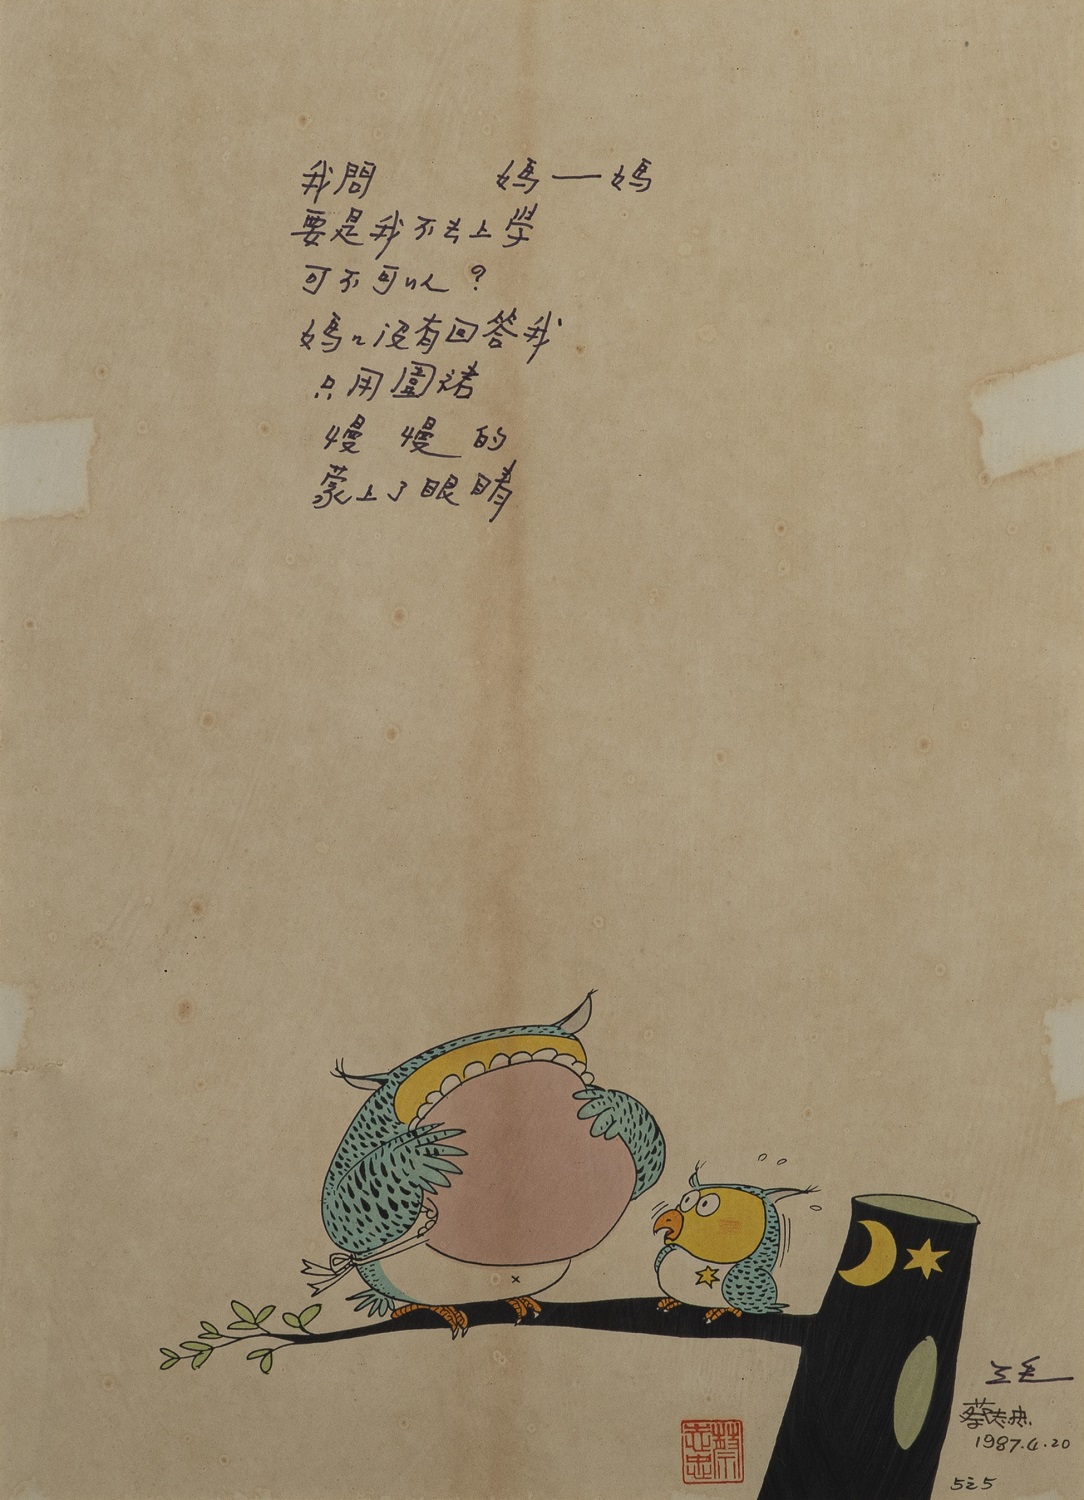 我問 媽——媽
要是我不去上學
可不可以？
媽々沒有回答我
只用圍裙
慢 慢 的
蒙上了眼睛
三毛
蔡志忠
1987.4.20
蔡志忠